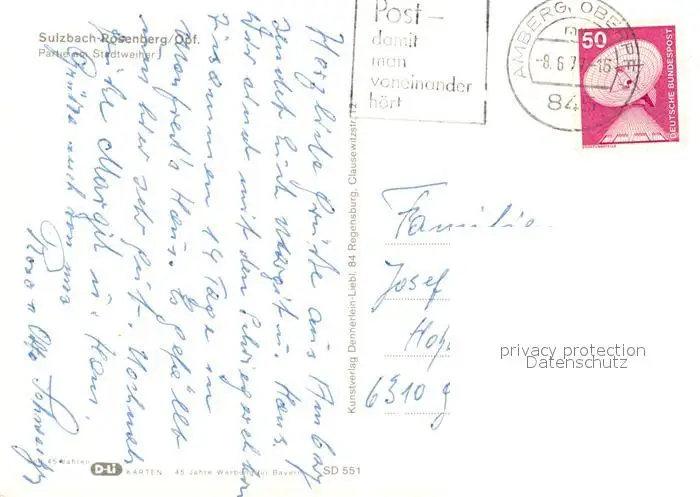 Sulzbach-Rosenberg/Opf.
Partie am Stadtweiher
Post –
damit
man
voneinander
hört
AMBERG, OBERPF
-8.6.77-16
845
50
DEUTSCHE BUNDESPOST
Herzliche Grüße aus Amberg
sendet Euch Margit u. Hans.
Wir sind mit den Schwiegereltern
zusammen 14 Tage in
Manfred's Haus. Es gefällt
uns hier sehr gut. Nochmals
Grüße Margit u. Hans.
Grüße auch von uns
Rosa u. Otto
Familie
Josef
6310
Kunstverlag Dennerlein-Liebl, 84 Regensburg, Clausewitzstr. 12
45 Jahren
D-Li KARTEN . 45 Jahre Werbung für Bayern
SD 551
privacy protection
Datenschutz